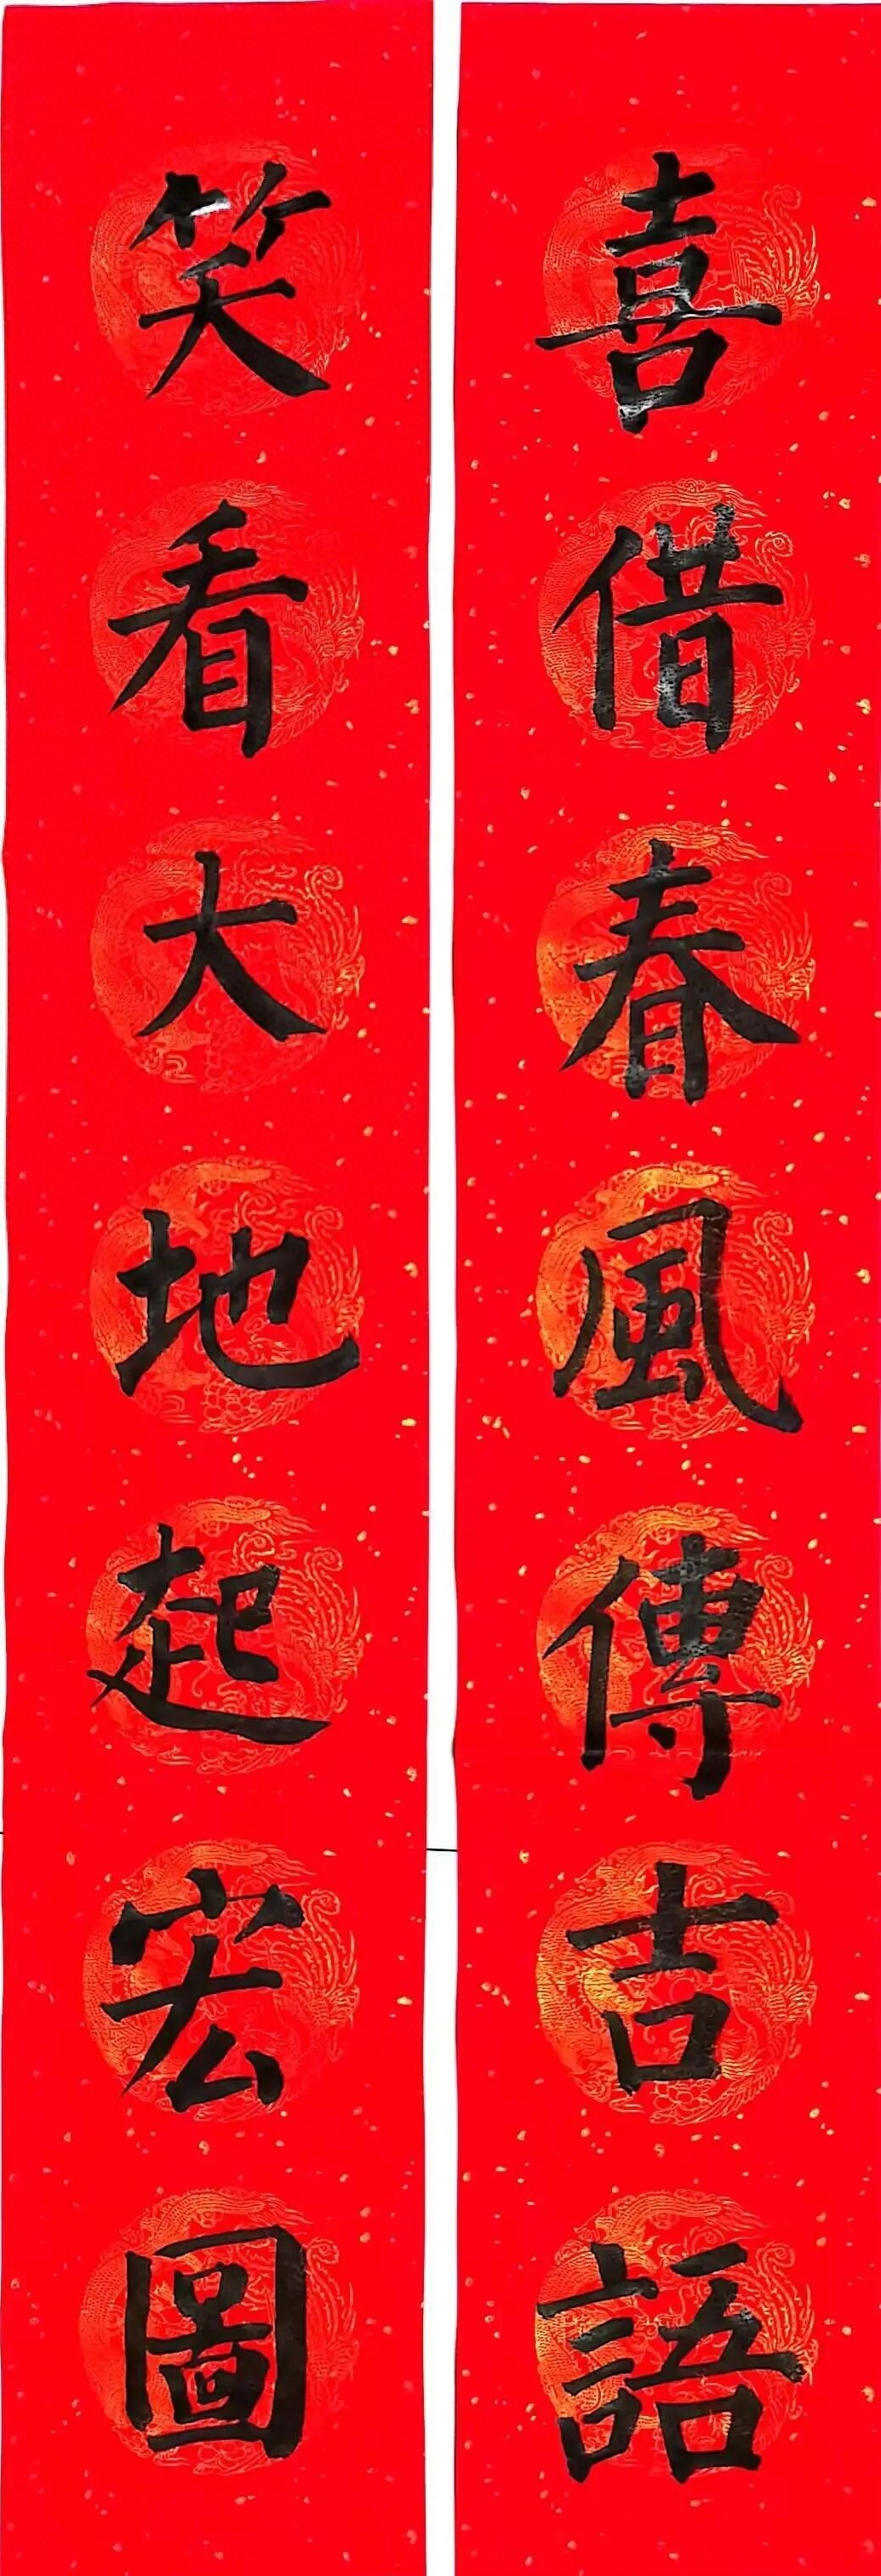 喜借春風傳吉語
笑看大地起宏圖